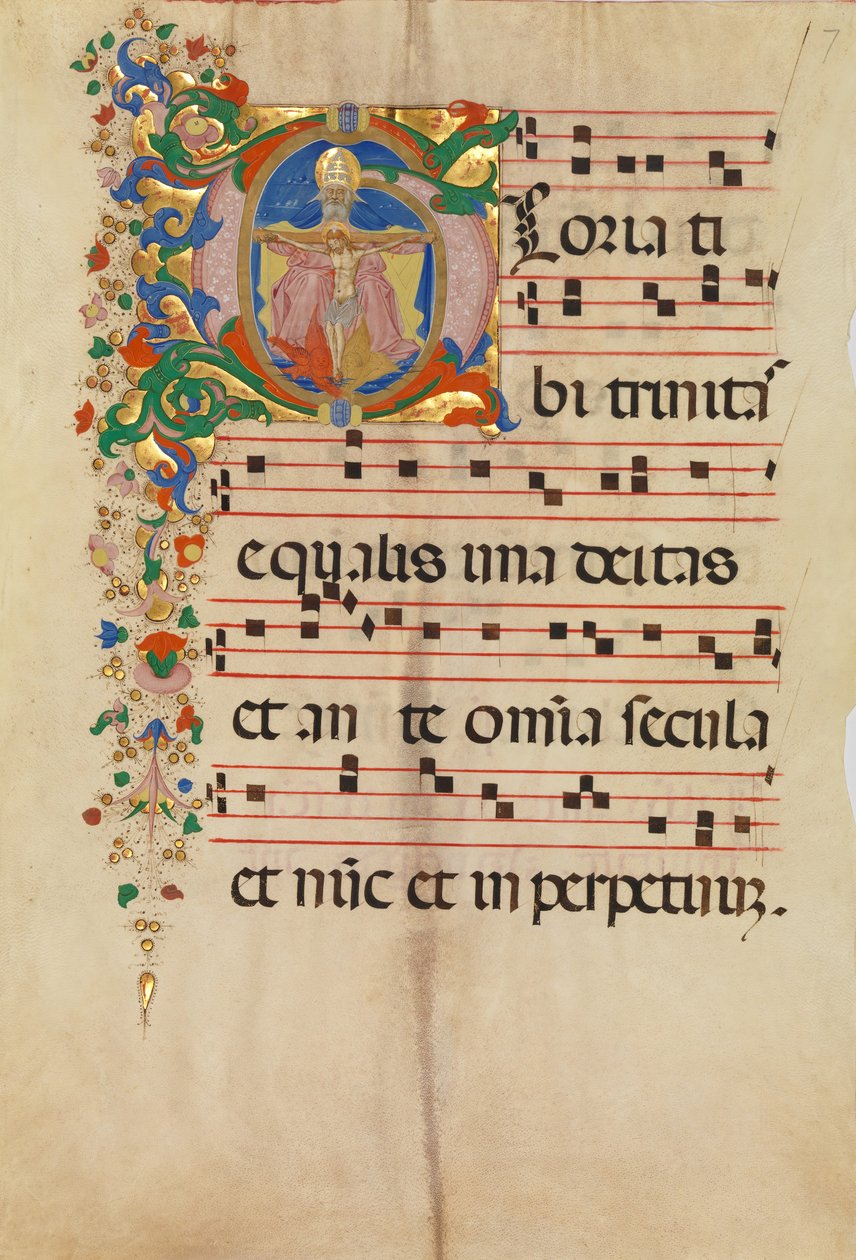 7
GLoria ti
bi trinitaˢ
equalis una deitas
et an te om̄ia ſecula
et nūc et in perpetuuꝫ.